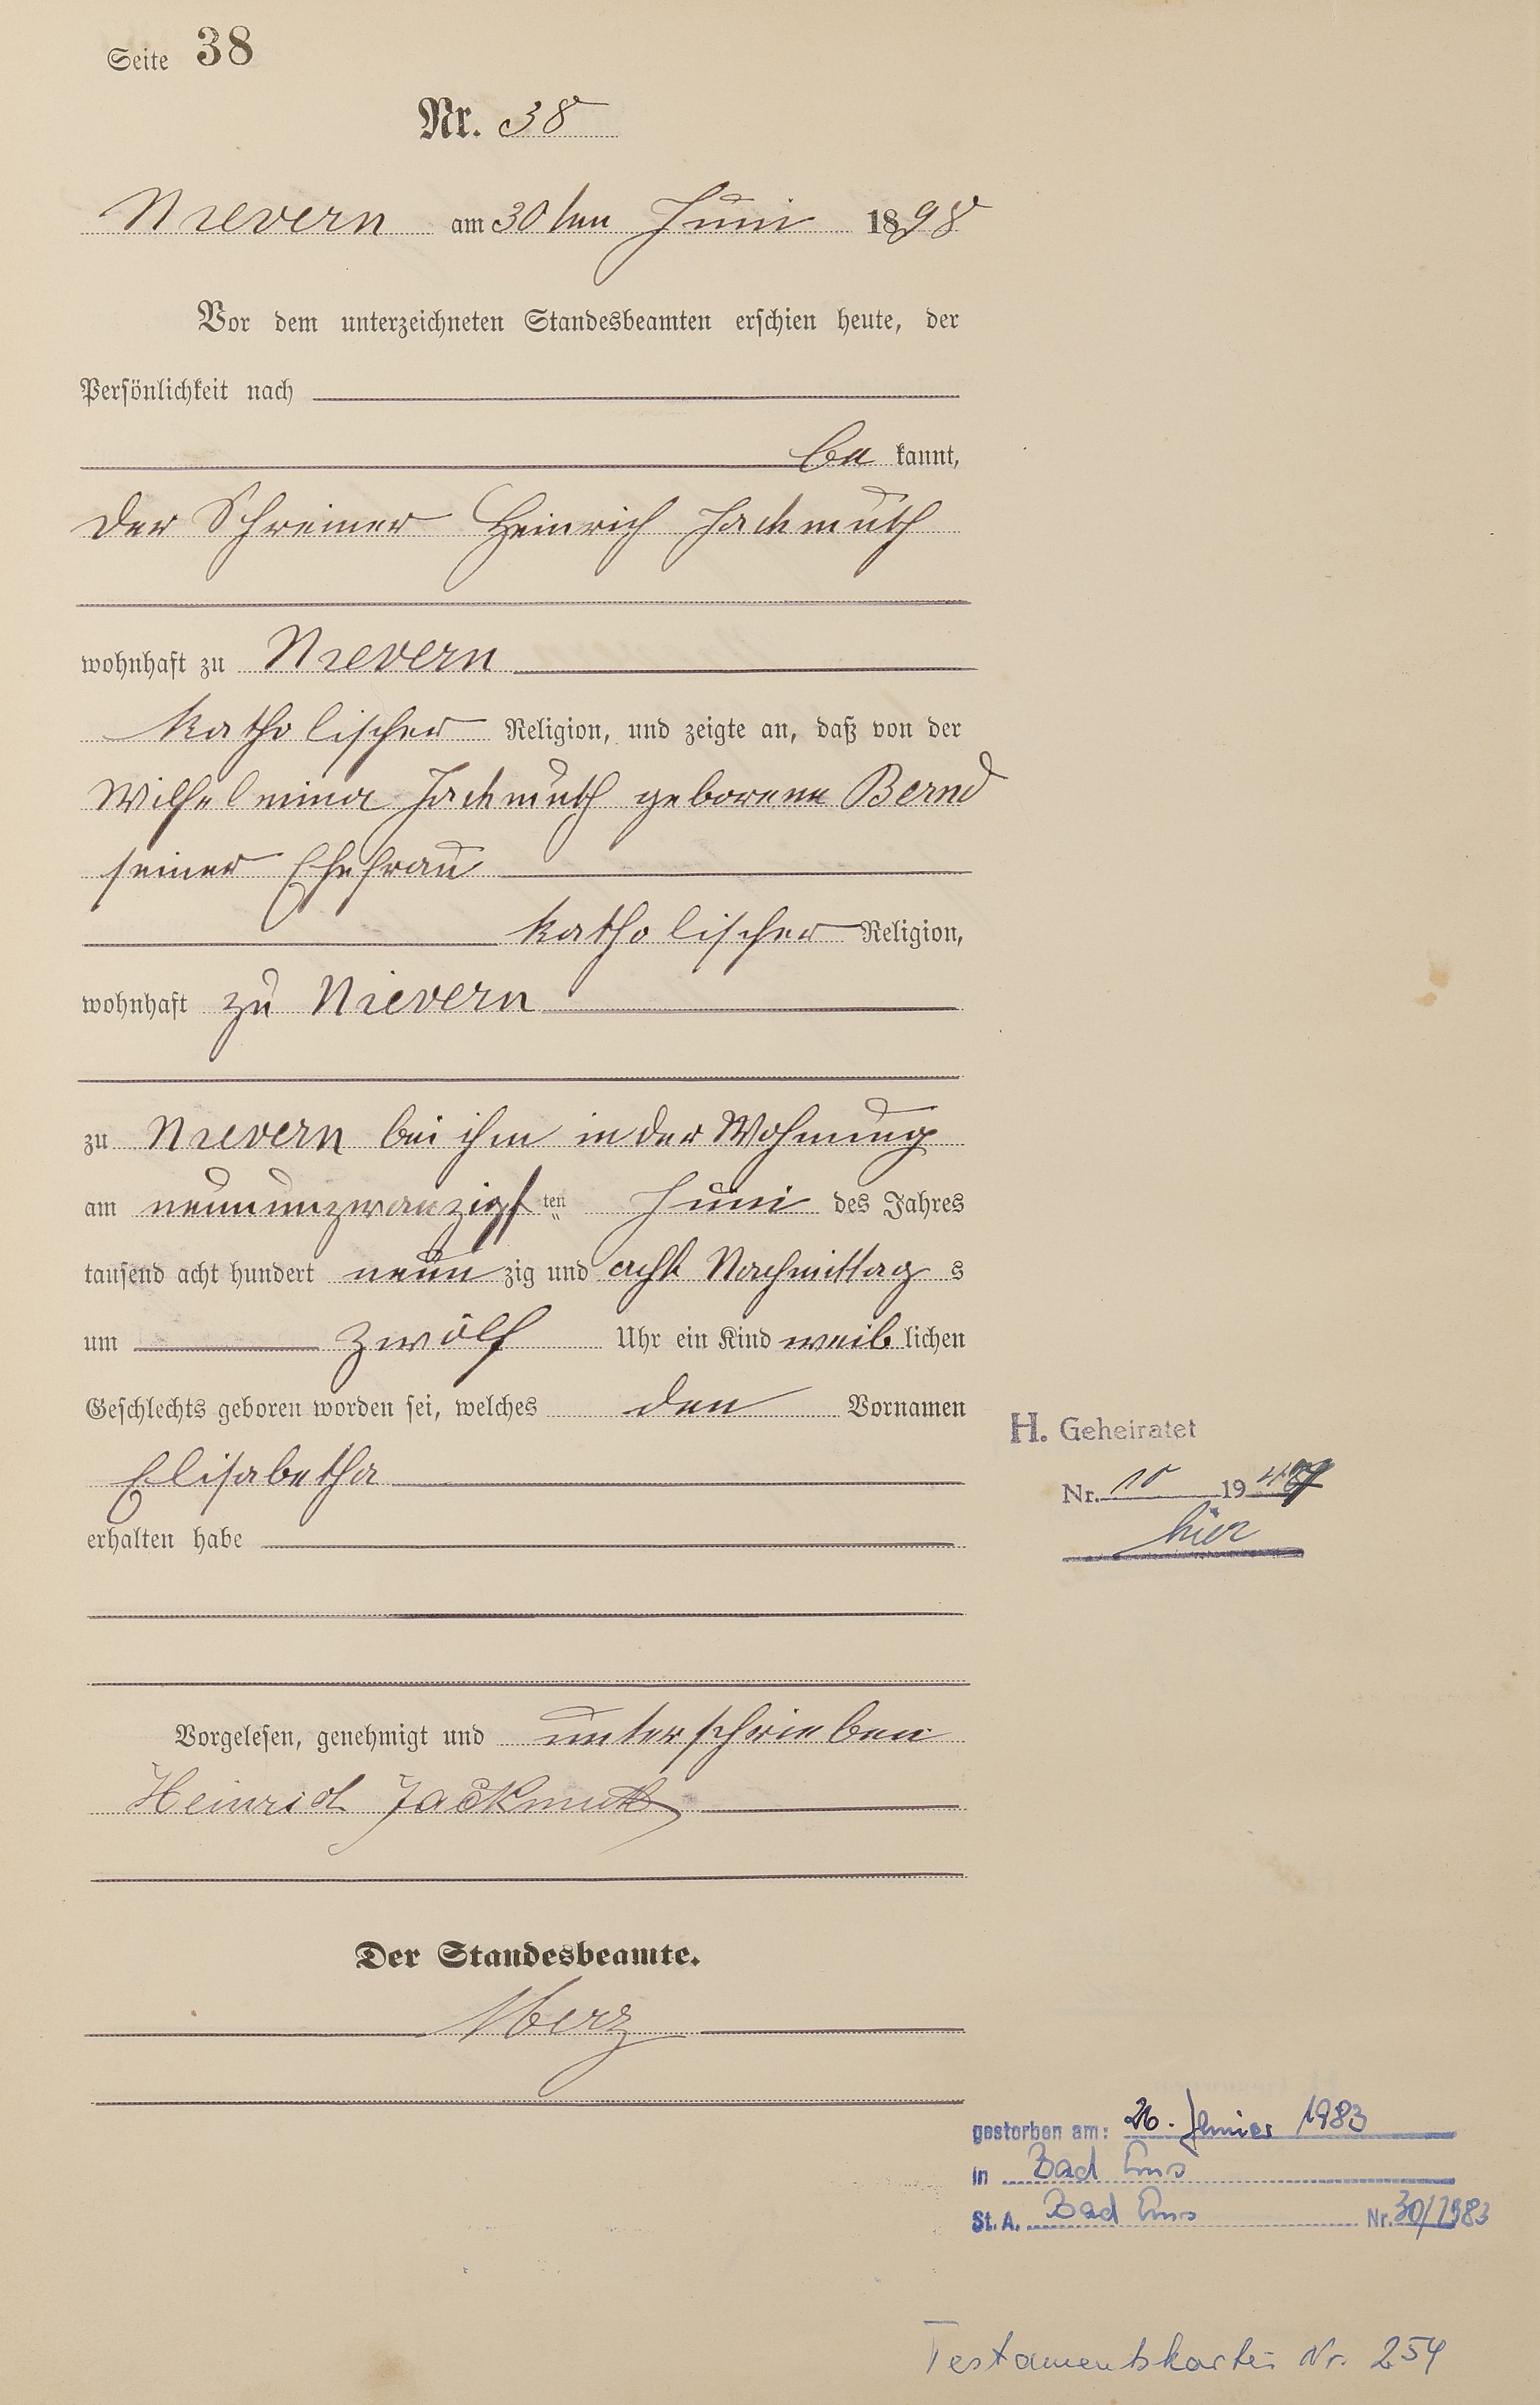 Seite 38
Nr. 38
Nievern am 30ten Juni 1898
Vor dem unterzeichneten Standesbeamten erschien heute, der
Persönlichkeit nach
be kannt,
der Schreiner Heinrich Jackmuth
wohnhaft zu Nievern
katholischer Religion, und zeigte an, daß von der
Wilhelmina Jackmuth geborene Bernd
seiner Ehefrau
katholischer Religion,
wohnhaft zu Nievern
zu Nievern bei ihm in der Wohnung
am neununzwanzigsten Juni des Jahres
tausend acht hundert neun zig und acht Nachmittag s
um zwölf Uhr ein Kind weib lichen
Geschlechts geboren worden sei, welches den Vornamen
H. Geheiratet
Elisabetha
Nr. 10 19
erhalten habe
hier
Vorgelesen, genehmigt und unterschrieben
Heinrich Jackmuth
Der Standesbeamte.
Merz
gestorben am: 26. Januar 1983
in Bad Ems
St. A. Bad Ems Nr. 30/1983
Testamentskartei Nr. 254